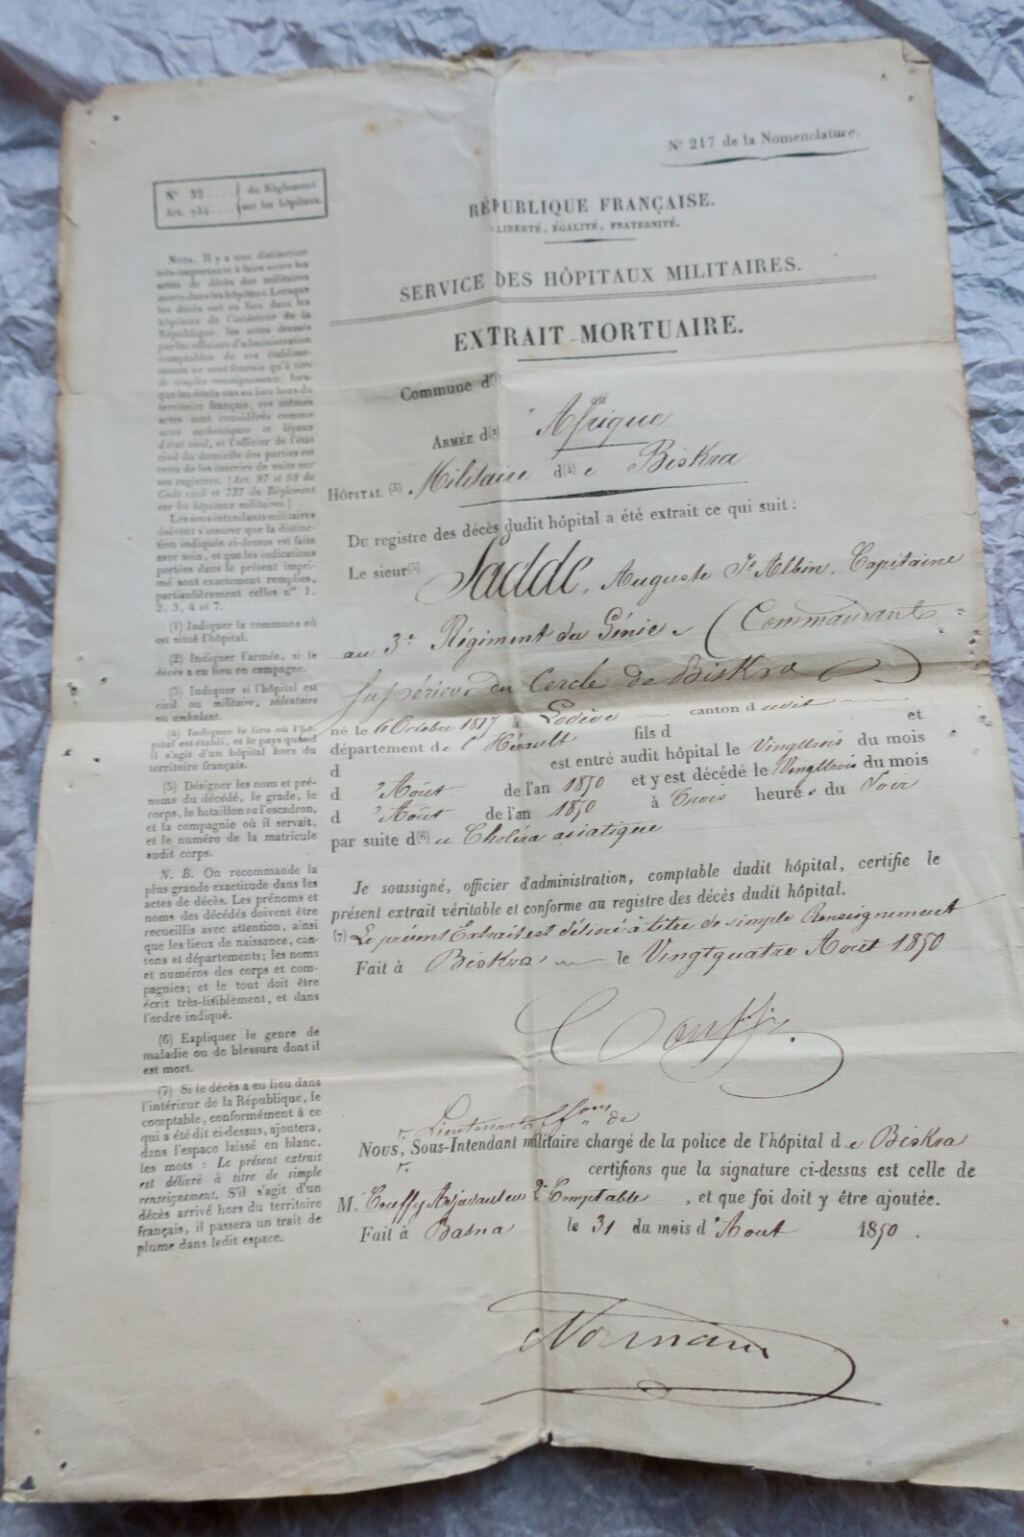 Nº 217 de la Nomenclature.
Nº 52 .... du Règlement
Art. 734 .... sur les hôpitaux.
RÉPUBLIQUE FRANÇAISE.
LIBERTÉ, ÉGALITÉ, FRATERNITÉ.
SERVICE DES HÔPITAUX MILITAIRES.
EXTRAIT MORTUAIRE.
Commune d(1)
ou
ARMÉE d(2) 'Afrique
HÔPITAL (3) Militaire d(4) e Biskra
Du registre des décès dudit hôpital a été extrait ce qui suit :
Le sieur(5) Sadde, Auguste St Albin, Capitaine
au 3e Régiment du Génie (Commandant
Supérieur du Cercle de Biskra)
né le 6 Octobre 1817 à Lodève canton d udit
département de l'Hérault fils d et
d est entré audit hôpital le Vingttrois du mois
d 'Août de l'an 1850 et y est décédé le Vingttrois du mois
d 'Août de l'an 1850 à trois heures du Soir
par suite d(6) e Choléra asiatique
Je soussigné, officier d'administration, comptable dudit hôpital, certifie le
présent extrait véritable et conforme au registre des décès dudit hôpital.
(7) Le présent Extrait est délivré à titre de simple Renseignement
Fait à Biskra le Vingtquatre Août 1850
Lieutenant de
NOUS, Sous-Intendant militaire chargé de la police de l'hôpital d e Biskra
certifions que la signature ci-dessus est celle de
M. Comptable, et que foi doit y être ajoutée.
Fait à Batna le 31 du mois d'Août 1850.
NOTA. Il y a une distinction
très-importante à faire entre les
actes de décès des militaires
morts dans les hôpitaux. Lorsque
les décès ont eu lieu dans les
hôpitaux de l'intérieur de la
République, les actes dressés
par les officiers d'administration
comptables de ces établisse-
ments ne sont fournis qu'à titre
de simples renseignements; lors-
que les décès ont eu lieu hors du
territoire français, ces mêmes
actes sont considérés comme
actes authentiques et légaux
d'état civil, et l'officier de l'état
civil du domicile des parties est
tenu de les inscrire de suite sur
ses registres. (Art. 97 et 98 du
Code civil et 737 du Règlement
sur les hôpitaux militaires.)
Les sous-intendants militaires
doivent s'assurer que la distinc-
tion indiquée ci-dessus est faite
avec soin, et que les indications
portées dans le présent impri-
mé sont exactement remplies,
particulièrement celles nos 1,
2, 3, 4 et 7.
(1) Indiquer la commune où
est situé l'hôpital.
(2) Indiquer l'armée, si le
décès a eu lieu en campagne.
(3) Indiquer si l'hôpital est
civil ou militaire, sédentaire
ou ambulant.
(4) Indiquer le lieu où l'hô-
pital est établi, et le pays quand
il s'agit d'un hôpital hors du
territoire français.
(5) Désigner les nom et pré-
noms du décédé, le grade, le
corps, le bataillon ou l'escadron,
et la compagnie où il servait,
et le numéro de la matricule
audit corps.
N. B. On recommande la
plus grande exactitude dans les
actes de décès. Les prénoms et
noms des décédés doivent être
recueillis avec attention, ainsi
que les lieux de naissance, can-
tons et départements; les noms
et numéros des corps et com-
pagnies; et le tout doit être
écrit très-lisiblement, et dans
l'ordre indiqué.
(6) Expliquer le genre de
maladie ou de blessure dont il
est mort.
(7) Si le décès a eu lieu dans
l'intérieur de la République, le
comptable, conformément à ce
qui a été dit ci-dessus, ajoutera,
dans l'espace laissé en blanc,
les mots : Le présent extrait
est délivré à titre de simple
renseignement. S'il s'agit d'un
décès arrivé hors du territoire
français, il passera un trait de
plume dans ledit espace.